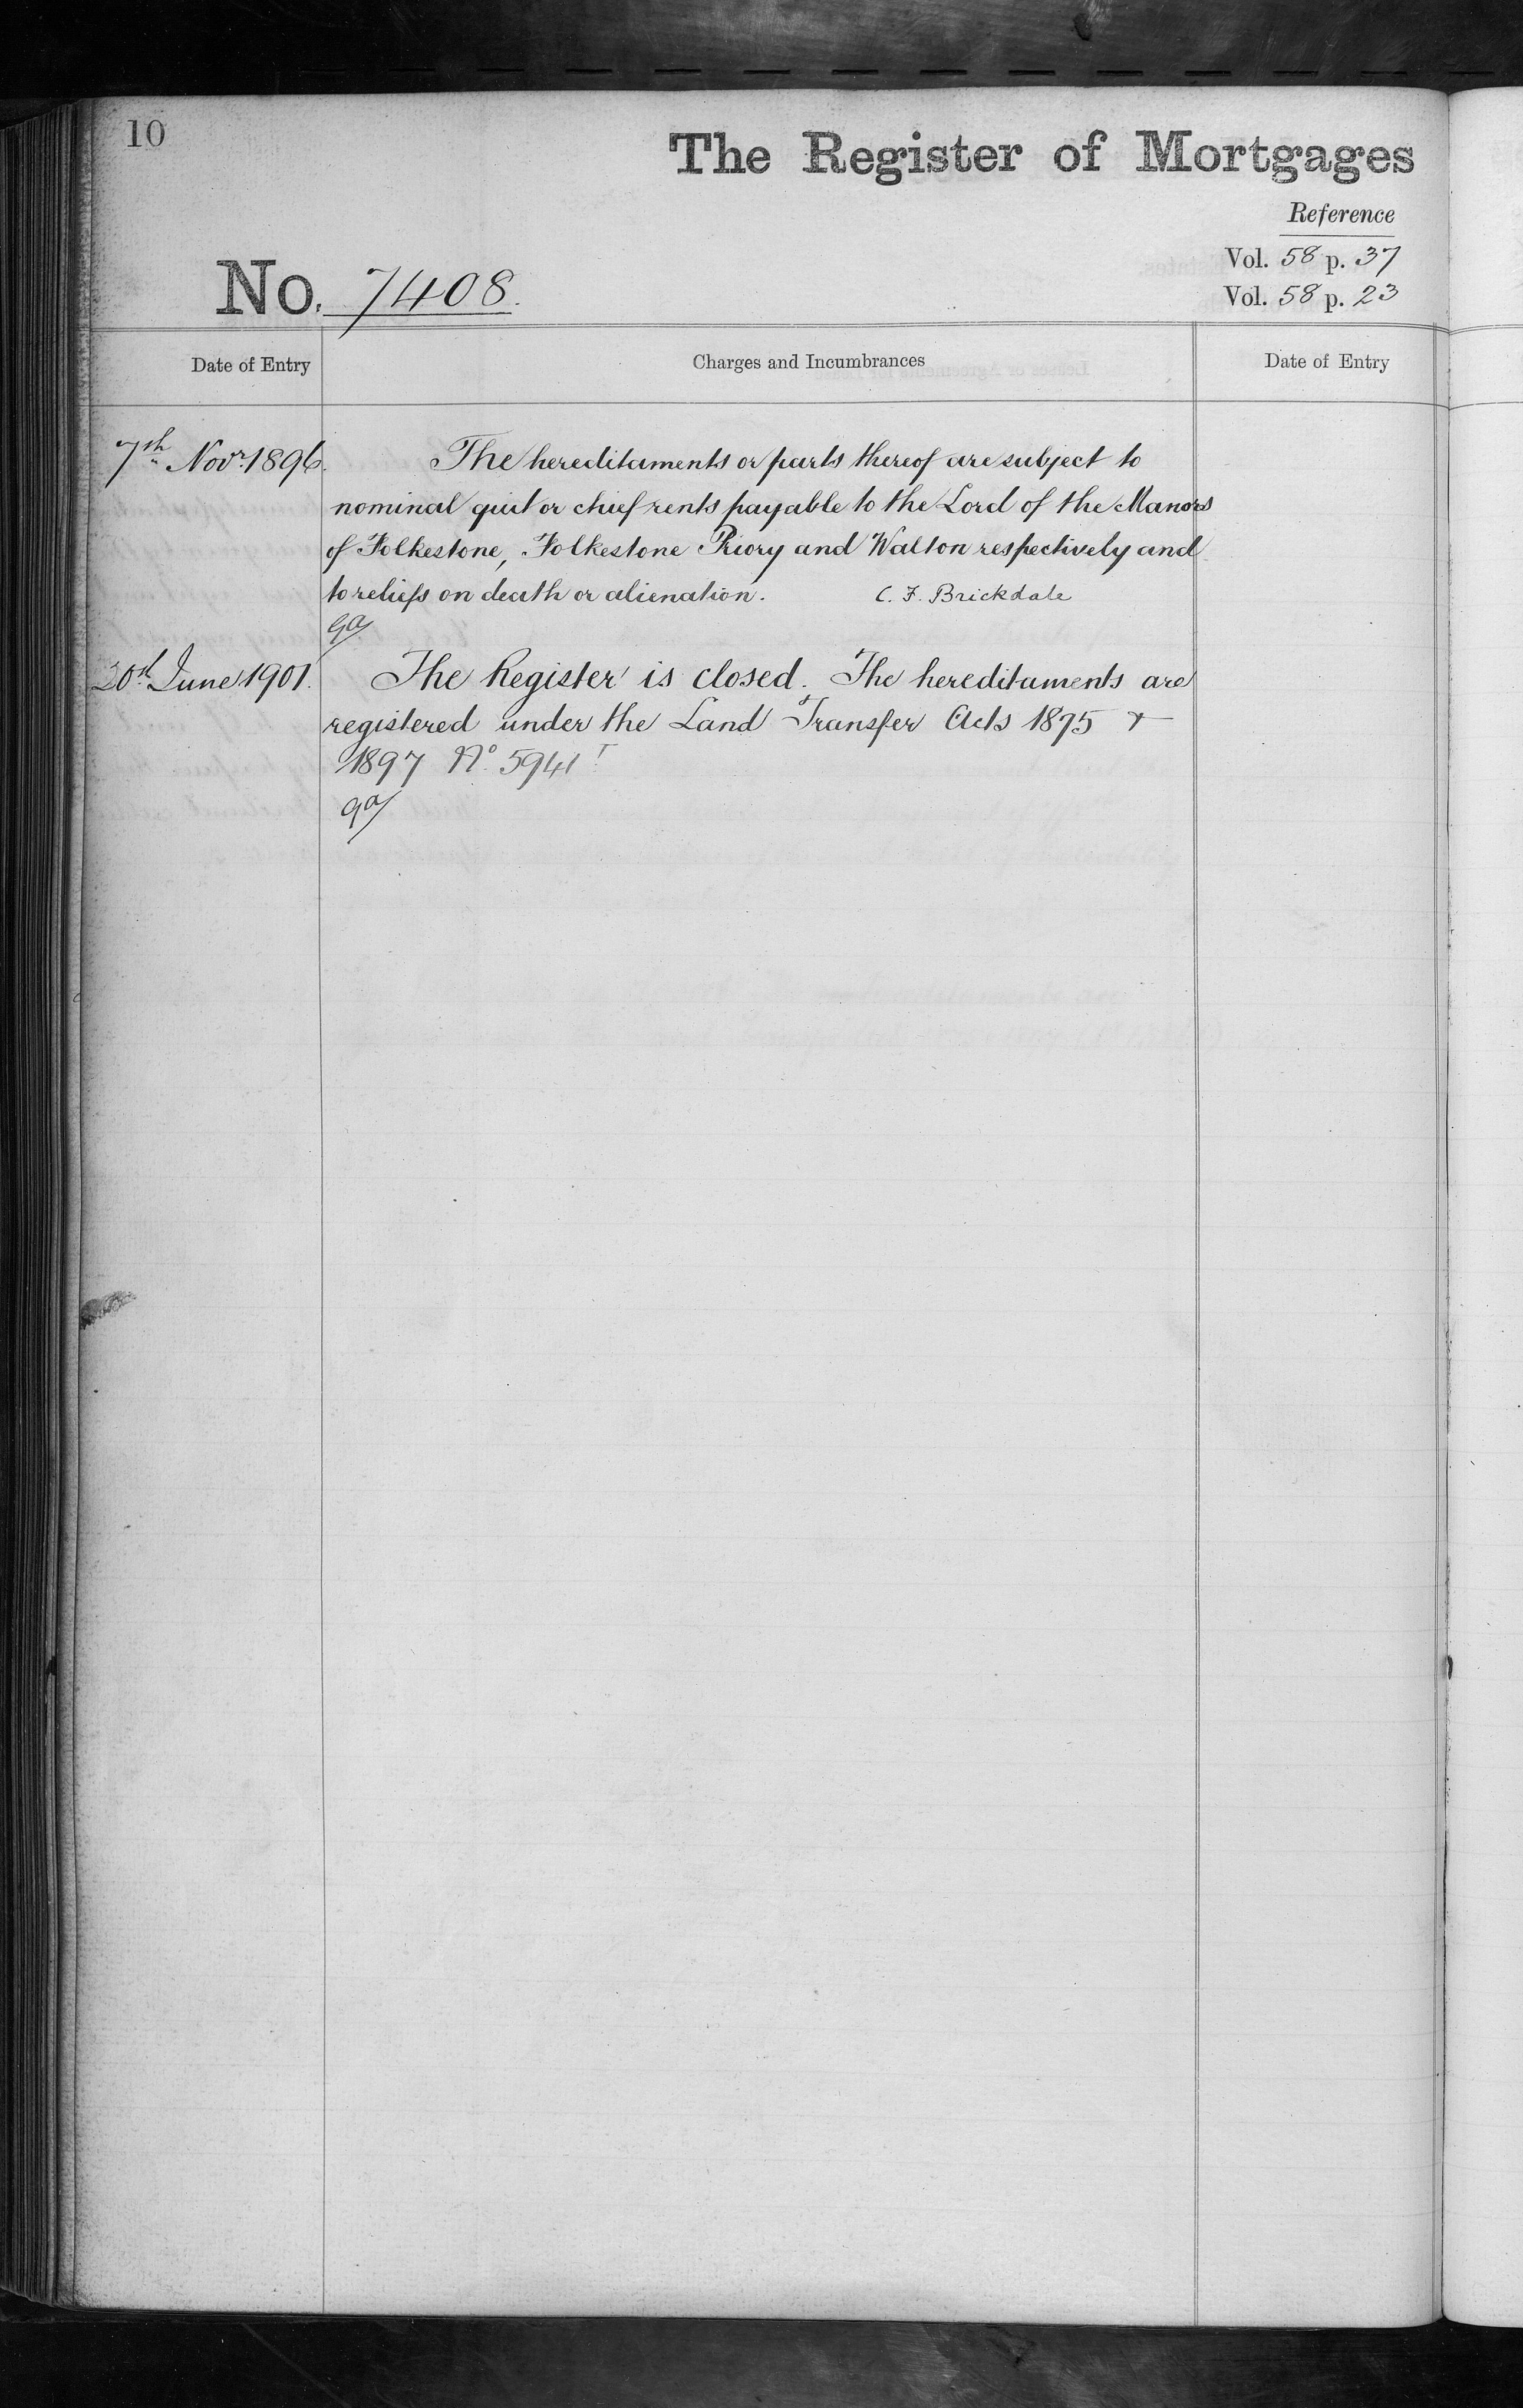 10
The Register of Mortgages
Reference
Vol. 58 p. 37
Vol. 58 p. 23
No. 7408.
Date of Entry
Charges and Incumbrances
Date of Entry
7th Novr. 1896.
The hereditaments or parts thereof are subject to
nominal quit or chief rents payable to the Lord of the Manors
of Folkestone, Folkestone Priory and Walton respectively and
to reliefs on death or alienation. C. F. Brickdale
20th June 1901.
The Register is closed. The hereditaments are
registered under the Land Transfer Acts 1875 &
1897 No. 5941